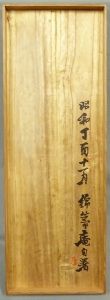 昭和丁酉十一月
庵自署